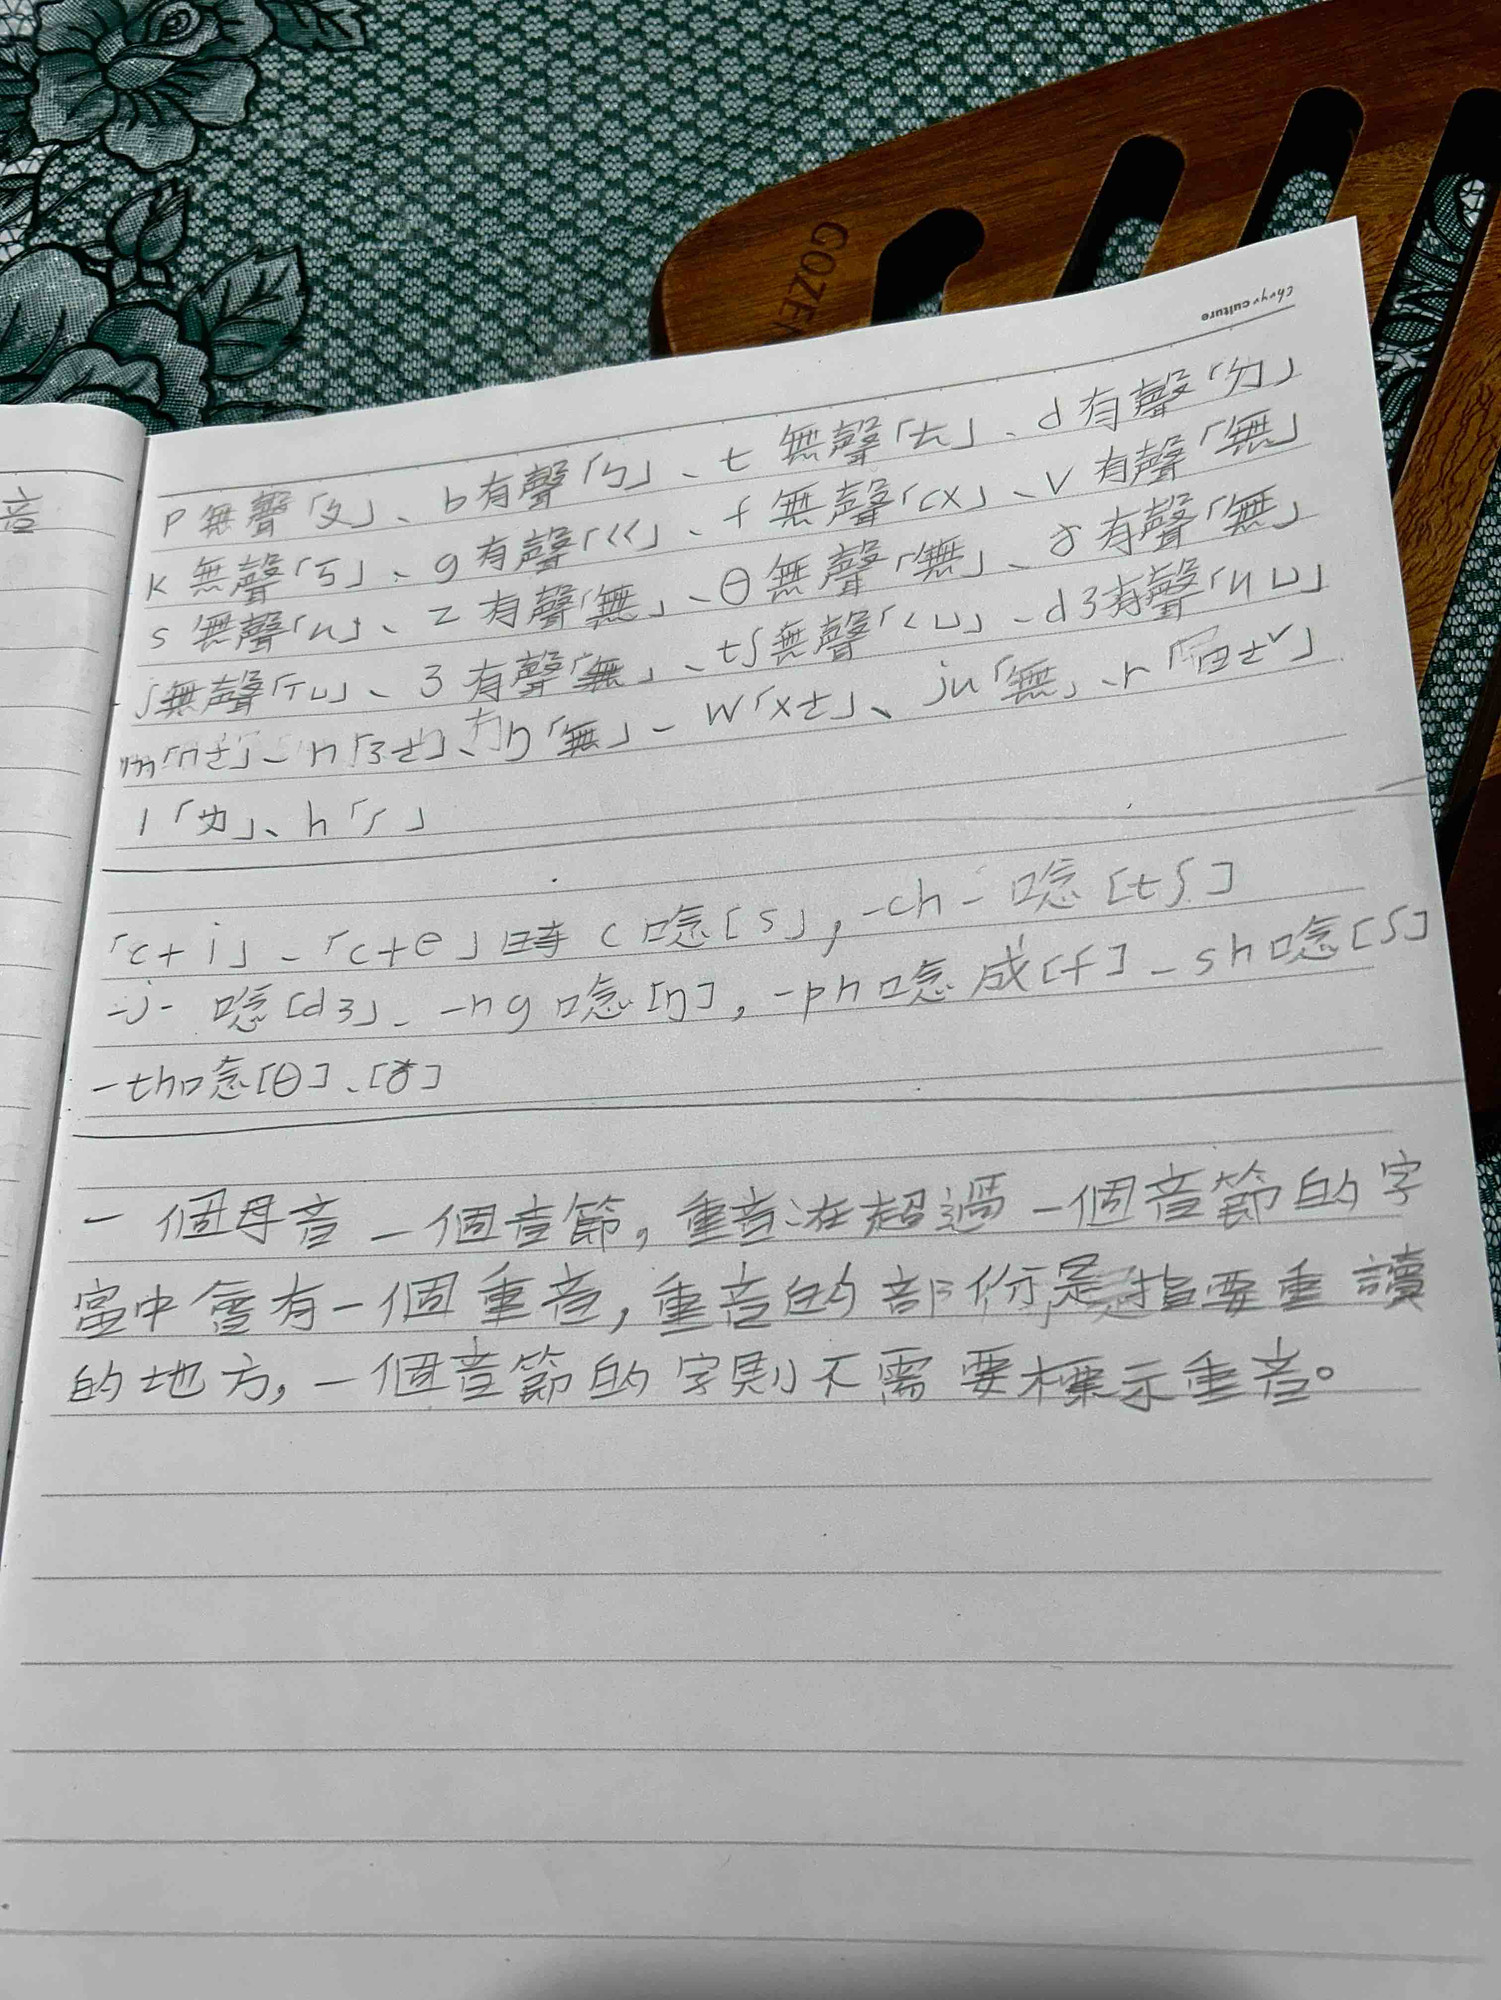 GOZEN
Chuyu culture
音
p 無聲「ㄆ」、b 有聲「ㄅ」、t 無聲「ㄊ」、d 有聲「ㄉ」
k 無聲「ㄎ」、g 有聲「ㄍ」、f 無聲「ㄈㄨ」、v 有聲「無」
s 無聲「ㄙ」、z 有聲「無」、θ 無聲「無」、ð 有聲「無」
ʃ 無聲「ㄒㄩ」、ʒ 有聲「無」、tʃ 無聲「ㄑㄩ」、dʒ 有聲「ㄐㄩ」
m「ㄇㄜ」、n「ㄋㄜ」、ŋ「無」、w「ㄨㄜ」、ju「無」、r「ㄖㄜˇ」
l「ㄌ」、h「ㄏ」
「c+i」、「c+e」時 c 唸[s」,-ch- 唸[tʃ]
-j- 唸[dʒ」、-ng 唸[ŋ],-ph 唸成[f]、sh 唸[ʃ]
-th 唸[θ]、[ð]
一個母音一個音節,重音:在超過一個音節的字
當中會有一個重音,重音的部份是指要重讀
的地方,一個音節的字則不需要標示重音。